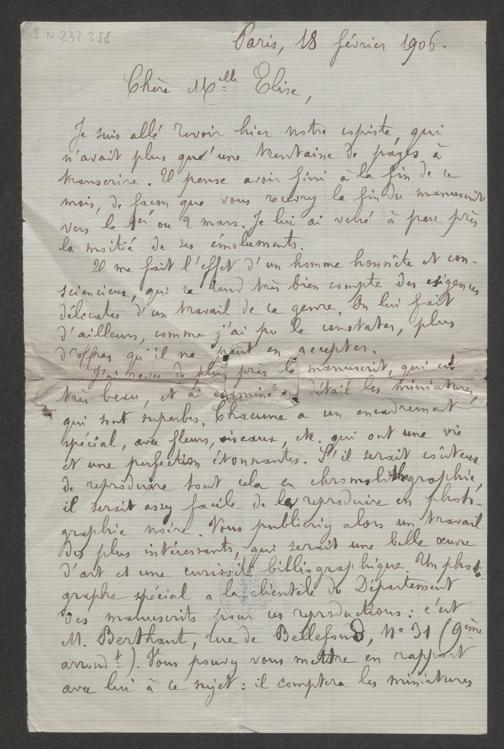 I N 232 258
Paris, 18 février 1906.
Chère M<sup>elle</sup> Elise,
Je suis allé revoir hier notre copiste, qui
n'avait plus qu'une trentaine de pages à
transcrire. Il pense avoir fini à la fin de ce
mois, de façon que vous recevrez la fin du manuscrit
vers le 1er ou 2 mars. Je lui ai versé à peu près
la moitié de ses émoluments.
Il me fait l'effet d'un homme honnête et con-
sciencieux, qui se rend très bien compte des exigences
délicates d'un travail de ce genre. On lui fait
d'ailleurs, comme j'ai pu le constater, plus
d'offres qu'il ne peut en accepter.
J'ai revu de plus près le manuscrit, qui est
très beau, et ai examiné en détail les miniatures,
qui sont superbes. Chacune a un encadrement
spécial, avec fleurs, oiseaux, etc. qui ont une vie
et une perfection étonnantes. S'il serait coûteux
de reproduire tout cela en chromolithographie,
il serait assez facile de le reproduire en photo-
graphie noire. Vous publieriez alors un travail
des plus intéressants, qui serait une belle œuvre
d'art et une curiosité bibliographique. Un photo-
graphe spécial a la clientèle du Département
des manuscrits pour ces reproductions : c'est
M. Berthaut, rue de Bellefond, N° 31 (9ème
arrondt). Vous pouvez vous mettre en rapport
avec lui à ce sujet : il comptera les miniatures